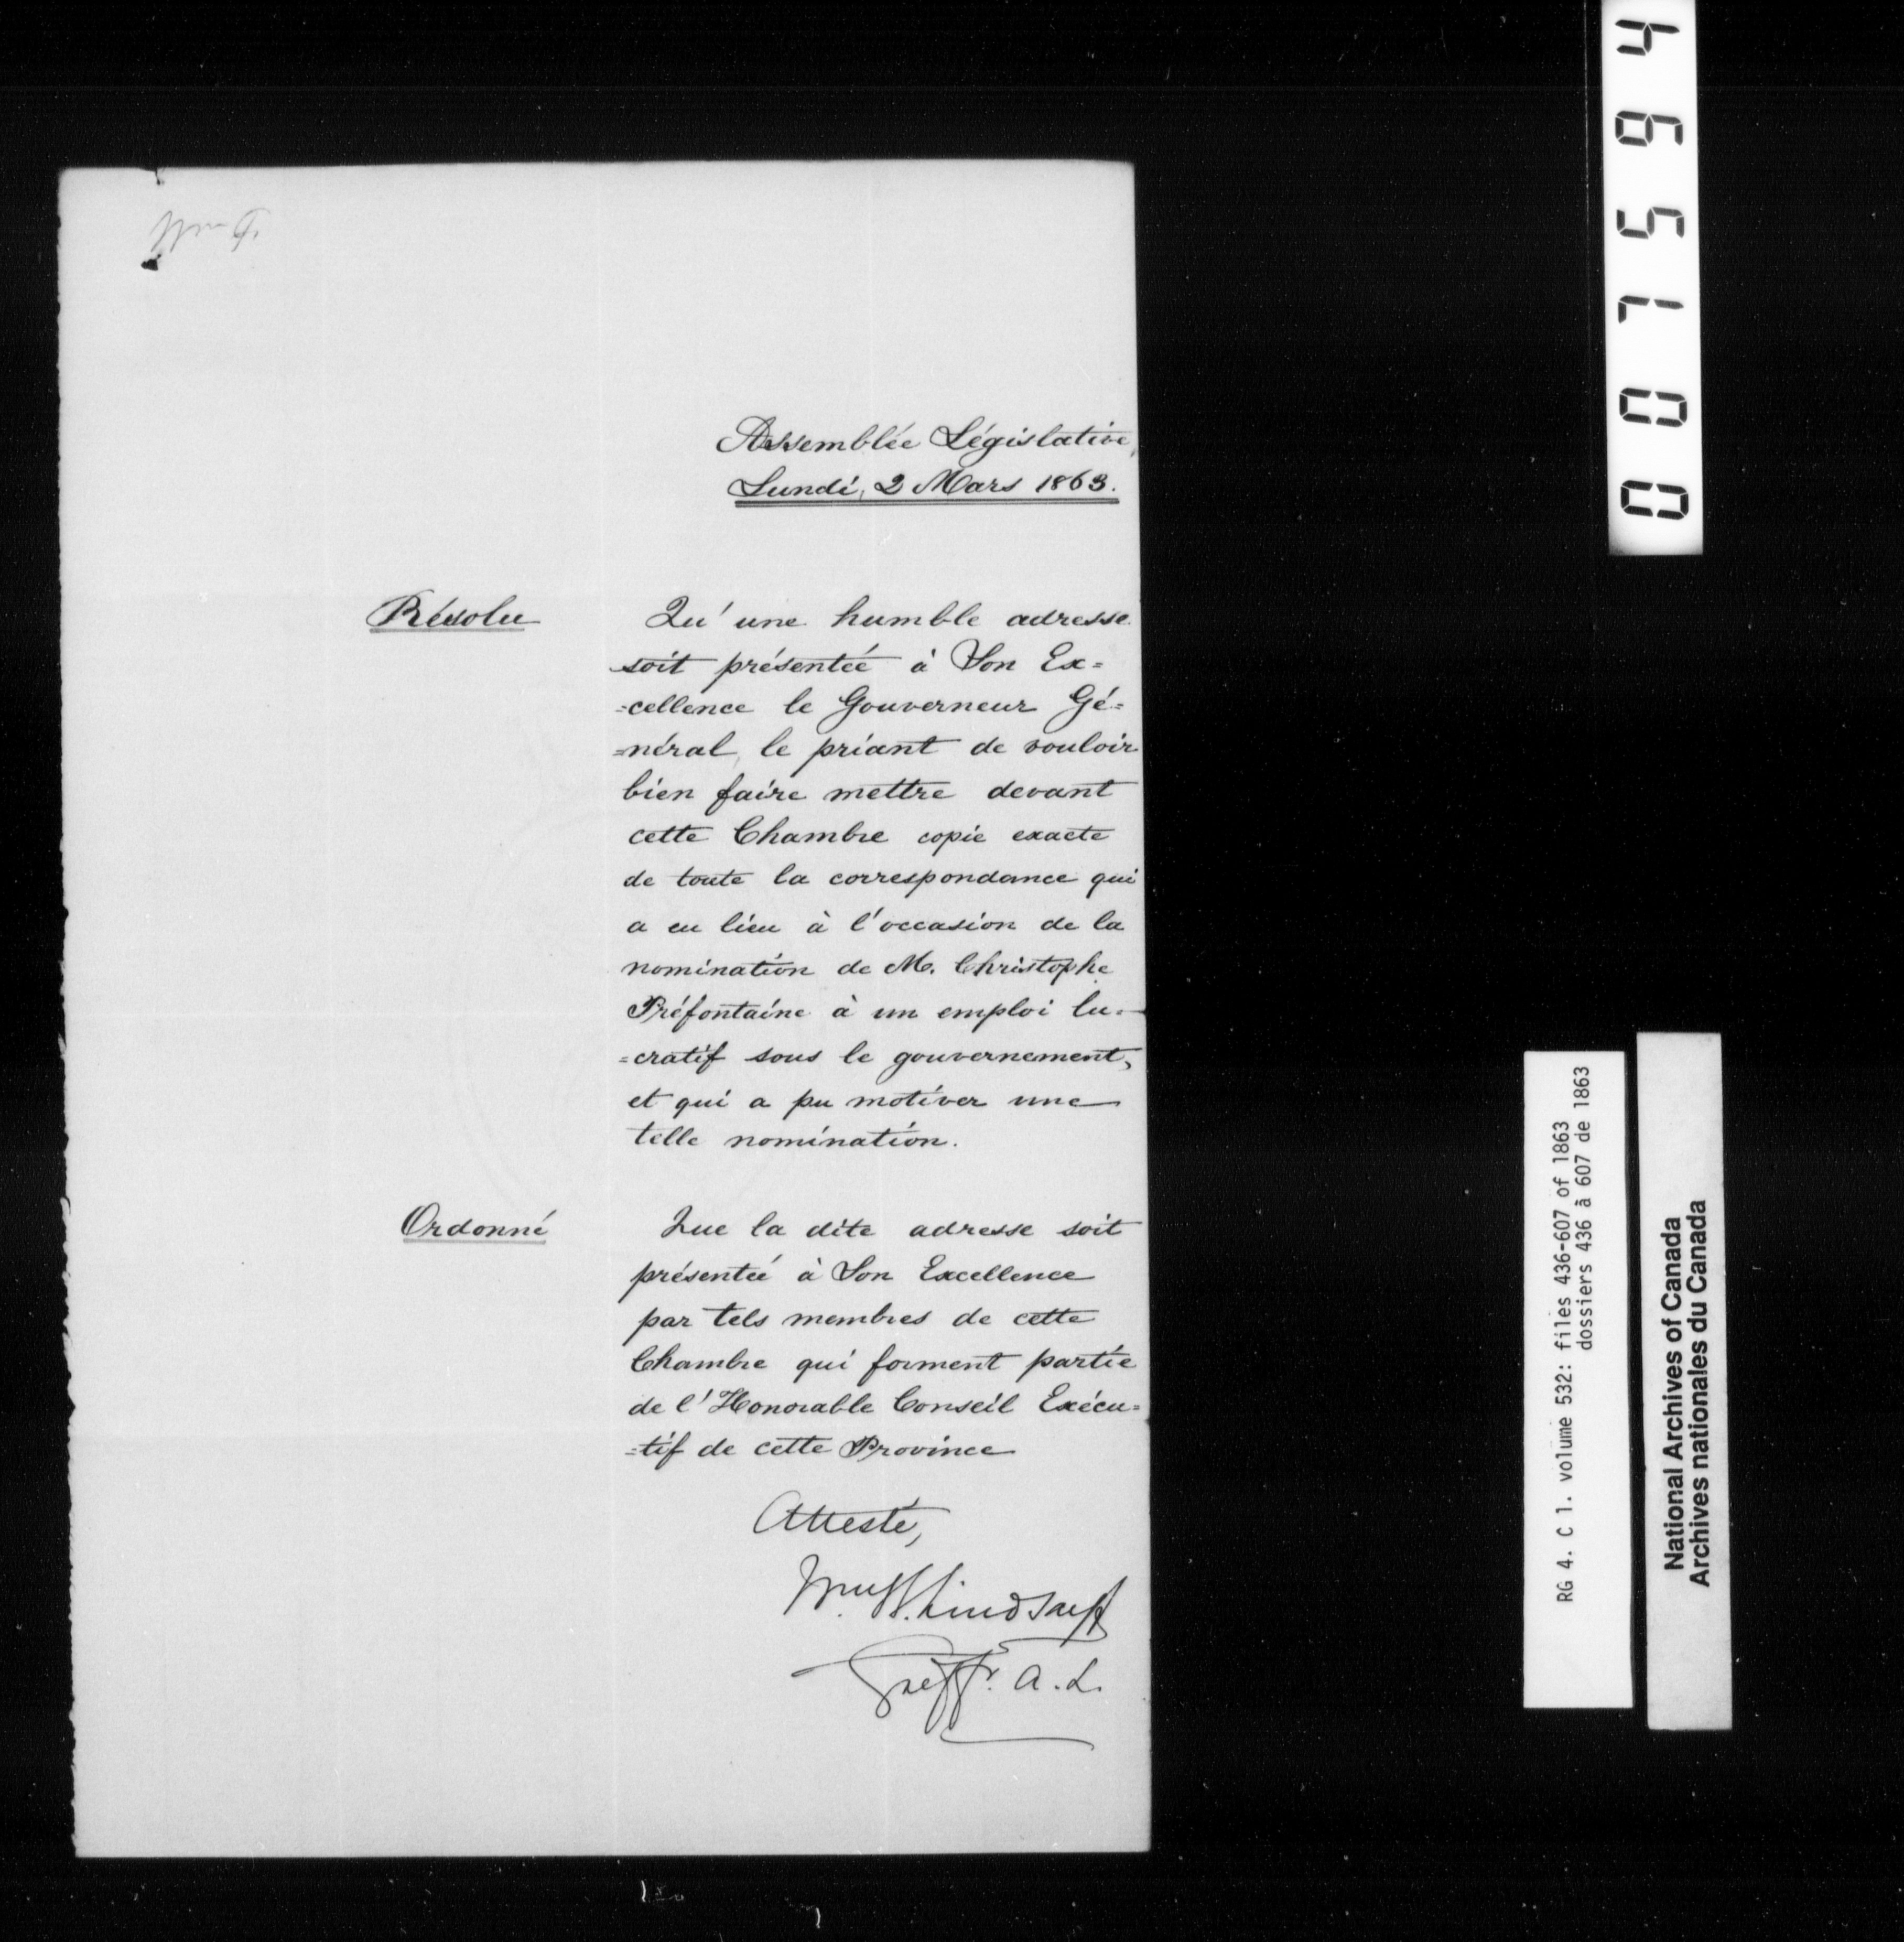 Assemblée Législative,
Lundi, 2 Mars 1863.
Résolu Qu'une humble adresse
soit présentée à Son Ex=
=cellence le Gouverneur Gé=
=néral, le priant de vouloir
bien faire mettre devant
cette Chambre copie exacte
de toute la correspondance qui
a eu lieu à l'occasion de la
nomination de M. Christophe
Préfontaine à un emploi lu=
=cratif sous le gouvernement,
et qui a pu motiver une
telle nomination.
Ordonné Que la dite adresse soit
présentée à Son Excellence
par tels membres de cette
Chambre qui forment partie
de l'Honorable Conseil Exécu=
=tif de cette Province
Attesté,
Wm. B. Lindsay
Greffr. A. L.
007594
RG 4. C 1. volume 532: files 436-607 of 1863
dossiers 436 à 607 de 1863
National Archives of Canada
Archives nationales du Canada